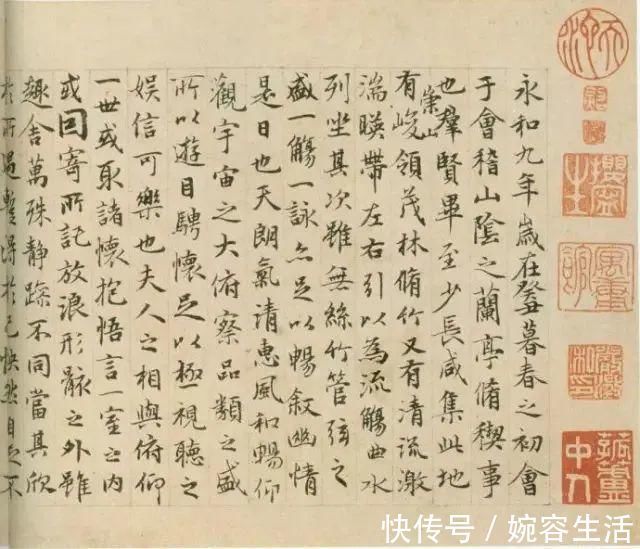 永和九年歲在癸丑暮春之初會
于會稽山陰之蘭亭脩稧事
也羣賢畢至少長咸集此地
有崇山峻領茂林脩竹又有清流激
湍暎帶左右引以為流觴曲水
列坐其次雖無絲竹管弦之
盛一觴一詠亦足以暢叙幽情
是日也天朗氣清惠風和暢仰
觀宇宙之大俯察品類之盛
所以遊目騁懷足以極視聽之
娛信可樂也夫人之相與俯仰
一世或取諸懷抱悟言一室之內
或因寄所託放浪形骸之外雖
趣舍萬殊靜躁不同當其欣
於所遇暫得於己快然自足不
快传号／婉容生活